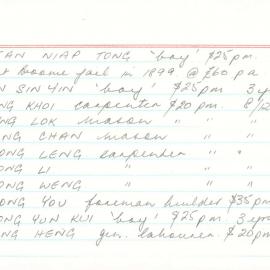 TAN NIAP TONG 'boy' $25 pm.
t Boome gail in 1899 @ £60 pa
N SIN YIN 'boy' $25pm 3 y
NG KHOI carpenter $20pm. 8/12
NG LOK mason " " "
NG CHAN mason " " "
ONG LENG carpenter " "
ONG LI " " "
ONG WENG " " "
ONG YOU foreman builder $35pm
ONG YUN KUI 'boy' $25pm. 3 yrs
NG HENG gen. labourer $20pm